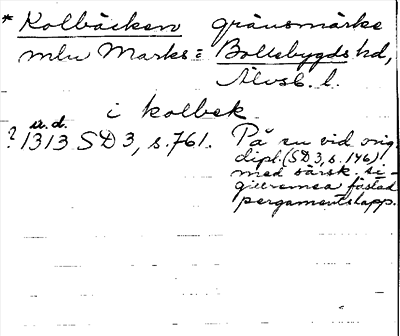 * Kolbäcken gränsmärke
mln Marks o Bollebygds hd,
Älvsb. l.
i kolbek
u. d.
? 1313 SD 3, s. 761. På en vid orig.
dipl. (SD 3, s. 146)
med särsk. si-
gillremsa fästad
pergamentslapp.